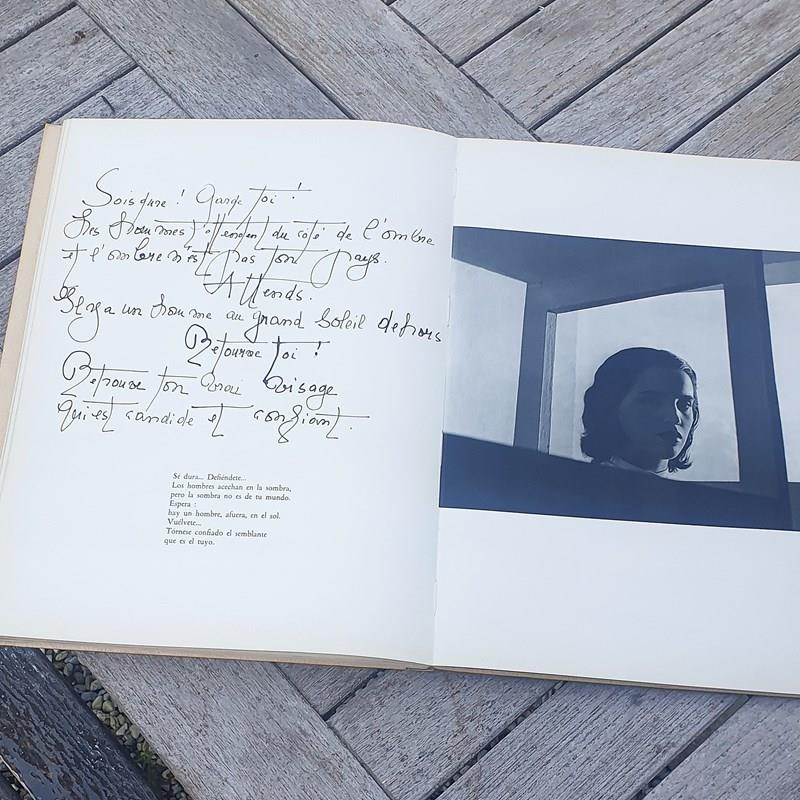 Sois dure ! Garde toi !
Les hommes t'attendent du côté de l'ombre
et l'ombre n'est pas ton pays.
Attends.
Il y a un homme au grand soleil dehors
Retourne toi !
Retrouve ton vrai visage
qui est candide et confiant.
Sé dura... Defiéndete...
Los hombres acechan en la sombra,
pero la sombra no es de tu mundo.
Espera :
hay un hombre, afuera, en el sol.
Vuélvete...
Tórnese confiado el semblante
que es el tuyo.